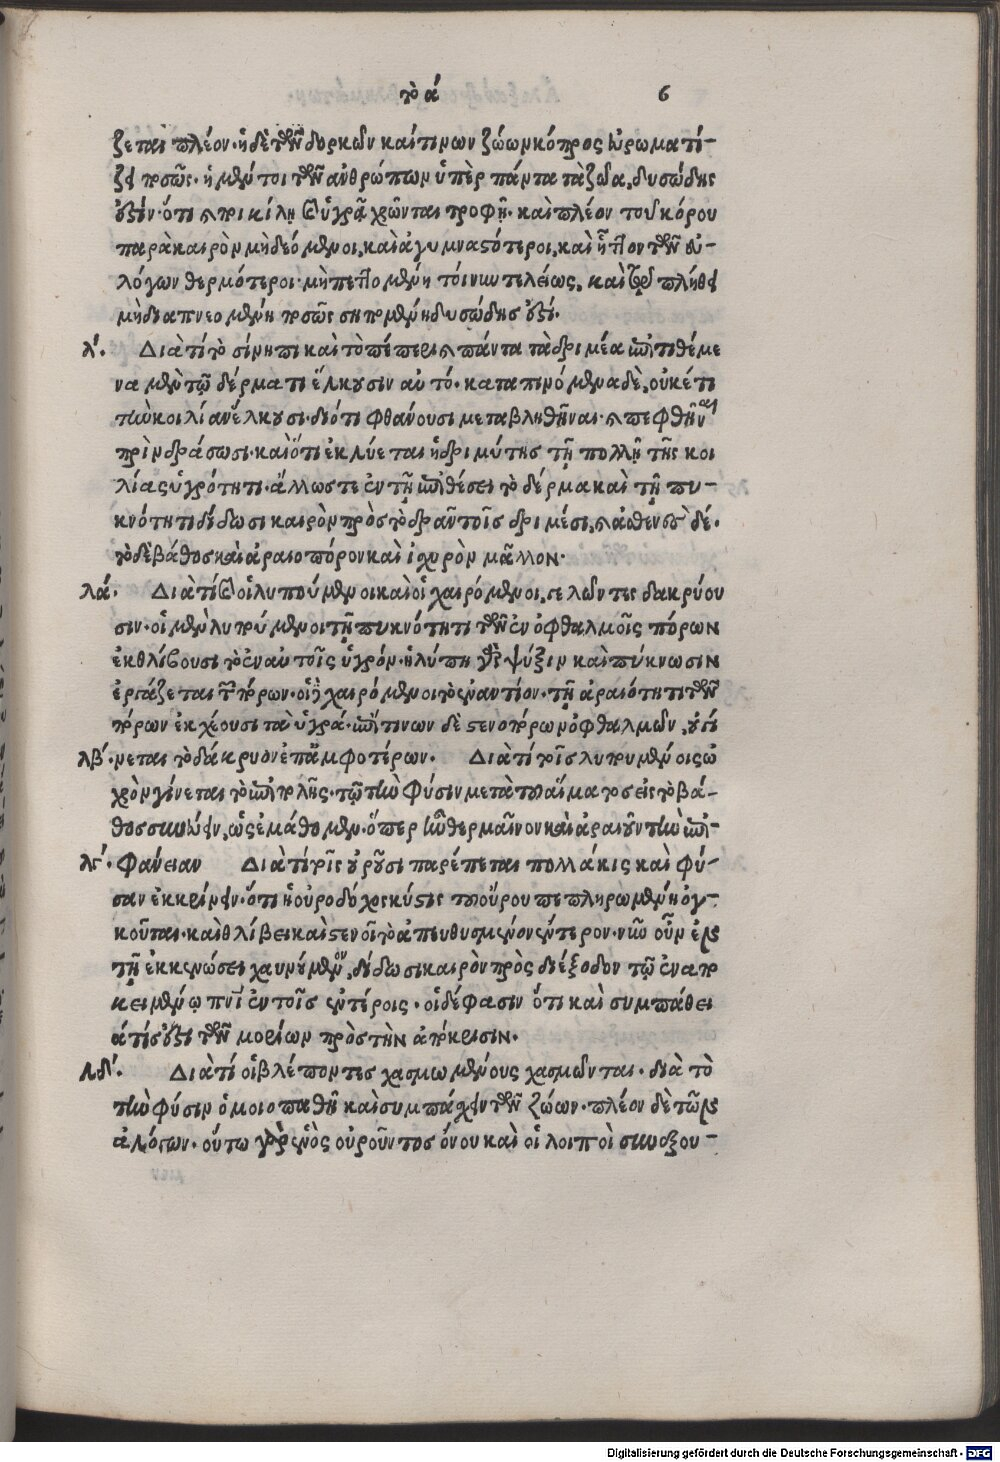 τὸ ά 6
ζεται πλέον· ἡ δὲ τῶν δορκῶν καί τινων ζώων κόπρος ἀρωματί-
ζει πως· ἡ μέντοι τῶν ἀνθρώπων ὑπὲρ πάντα τὰ ζῶα, δυσώδης
ἐστίν· ὅτι ποικίλη καὶ ὑγρᾷ χρῶνται τροφῇ· καὶ πλέον τοῦ κόρου
παρὰ καιρὸν μὴ δεόμενοι, καὶ ἀγυμναστότεροι, καὶ ἧττον τῶν ἀ-
λόγων θερμότεροι· μὴ πεττομένη τοίνυν τελείως, καὶ τῷ πλήθει
μὴ διαπνεομένη πως σηπομένη δυσώδης ἐστί.
λ´. Διὰ τί τὸ σίνηπι καὶ τὸ πέπερι καὶ πάντα τὰ δριμέα ἐπιτιθέμε
να μὲν τῷ δέρματι ἕλκουσιν αὐτό· καταπινόμενα δὲ, οὐκέτι
τὴν κοιλίαν ἕλκουσι· διότι φθάνουσι μεταβληθῆναι· καὶ πεφθῆναι
πρὶν δράσωσι· καὶ ὅτι ἐκλύεται ἡ δριμύτης τῇ πολλῇ τῆς κοι
λίας ὑγρότητι· ἄλλως τε ἐν τῇ ἐπιθέσει τὸ δέρμα καὶ τῇ πυ-
κνότητι δίδωσι καιρὸν πρὸς τὸ δρᾶν τοῖς δριμέσι, καὶ ἀσθενὲς δέ·
τὸ δὲ βάθος καὶ ἀραιοπόρον καὶ ἰσχυρὸν μᾶλλον·
λά· Διὰ τί καὶ οἱ λυπούμενοι καὶ οἱ χαιρόμενοι, γελῶντες δακρύου
σιν· οἱ μὲν λυπούμενοι τῇ πυκνότητι τῶν ἐν ὀφθαλμοῖς πόρων
ἐκθλίβουσι τὸ ἐν αὐτοῖς ὑγρόν· ἡ λύπη γὰρ ψύξιν καὶ πύκνωσιν
ἐργάζεται τῶν πόρων· οἱ δὲ χαιρόμενοι τὸ ἐναντίον· τῇ ἀραιότητι τῶν
πόρων ἐκχέουσι τὰ ὑγρά· ἐπί τινων δὲ στενοπόρων ὀφθαλμῶν, οὐ γί
λβ´· νεται τὸ δάκρυον ἐπ᾽ ἀμφοτέρων· Διὰ τί τοῖς λυπουμένοις ὠ
χρὸν γίνεται τὸ ἐπιπολῆς· τῷ τὴν φύσιν μετὰ τοῦ αἵματος εἰς τὸ βά-
θος συνάγειν, ὡς ἐμάθομεν· ὅπερ ἦν θερμαῖνον καὶ ἀραιοῦν τὴν ἐπι-
λγ´· φάνειαν Διὰ τί τοῖς οὐροῦσι παρέπεται πολλάκις καὶ φύ-
σαν ἐκκρίνειν· ὅτι ἡ οὐροδόχος κύστις τοῦ οὔρου πεπληρωμένη ὀγ-
κοῦται· καὶ θλίβει καὶ στενοῖ τὸ ἀπευθυσμένον ἔντερον· νῦν οὖν ἐν
τῇ ἐκκενώσει χαυνούμενον, δίδωσι καιρὸν πρὸς διέξοδον τῷ ἐναπο
κειμένῳ πνι̅ ἐν τοῖς ἐντέροις· οἱ δέ φασιν ὅτι καὶ συμπάθει
ά τίς ἐστι τῶν μορίων πρὸς τὴν ἀπόκρισιν·
λδ´· Διὰ τί οἱ βλέποντες χασμωμένους χασμῶνται· διὰ τὸ
τὴν φύσιν ὁμοιοπαθῆ καὶ συμπάσχειν τῶν ζώων· πλέον δὲ τῶν
ἀλόγων· οὕτω γὰρ ἑνὸς οὐροῦντος ὄνου καὶ οἱ λοιποὶ συνεξου-